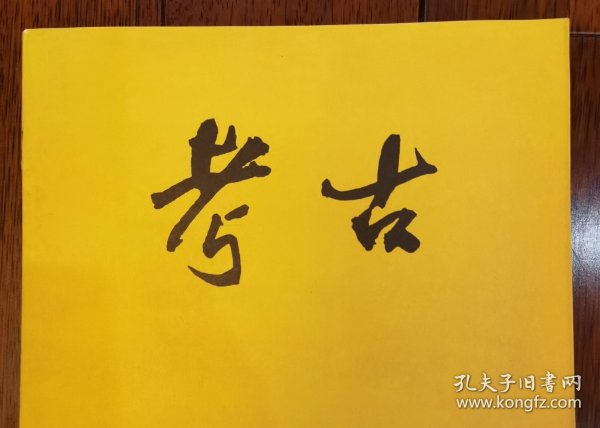 考古
孔夫子旧書网
www.kongfz.com